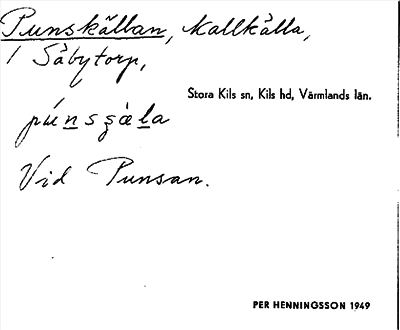 Punskällan, kallkälla,
i Såbytorp,
Stora Kils sn, Kils hd, Värmlands län.
púnsʂäla
Vid Punsan.
PER HENNINGSSON 1949